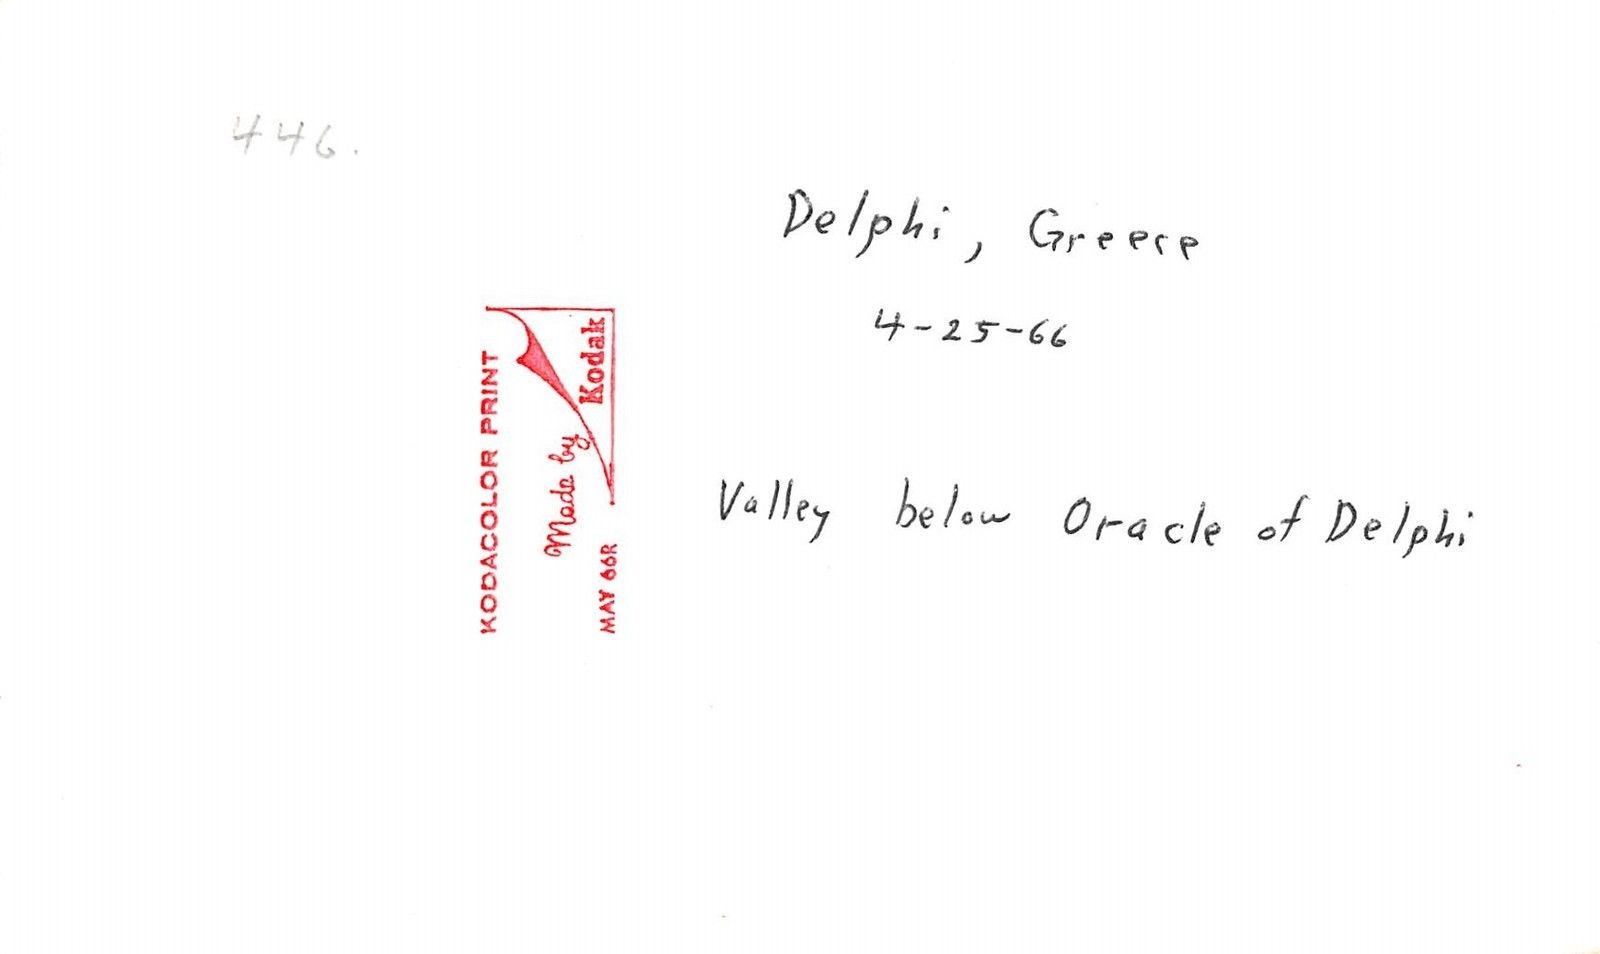 446.
Delphi, Greece
4-25-66
KODACOLOR PRINT
Made by
Kodak
MAY 66R
Valley below Oracle of Delphi